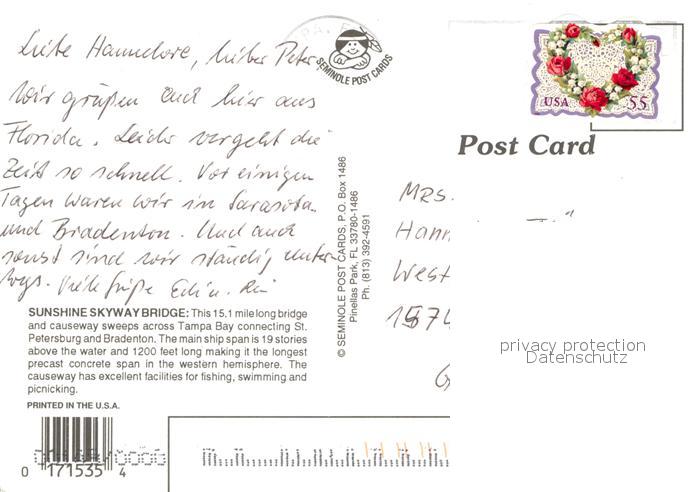 Liebe Hannelore, lieber Peter,
wir grüßen Euch hier aus
Florida. Leider vergeht die
Zeit so schnell. Vor einigen
Tagen waren wir in Sarasota
und Bradenton. Und auch
sonst sind wir ständig unter-
wegs. Viele Grüße
SUNSHINE SKYWAY BRIDGE: This 15.1 mile long bridge
and causeway sweeps across Tampa Bay connecting St.
Petersburg and Bradenton. The main ship span is 19 stories
above the water and 1200 feet long making it the longest
precast concrete span in the western hemisphere. The
causeway has excellent facilities for fishing, swimming and
picnicking.
PRINTED IN THE U.S.A.
0 171535 4
SEMINOLE POST CARDS
© SEMINOLE POST CARDS, P.O. Box 1486
Pinellas Park, FL 33780-1486
Ph. (813) 392-4591
USA 55
Post Card
MRS.
Hann
West
privacy protection
Datenschutz